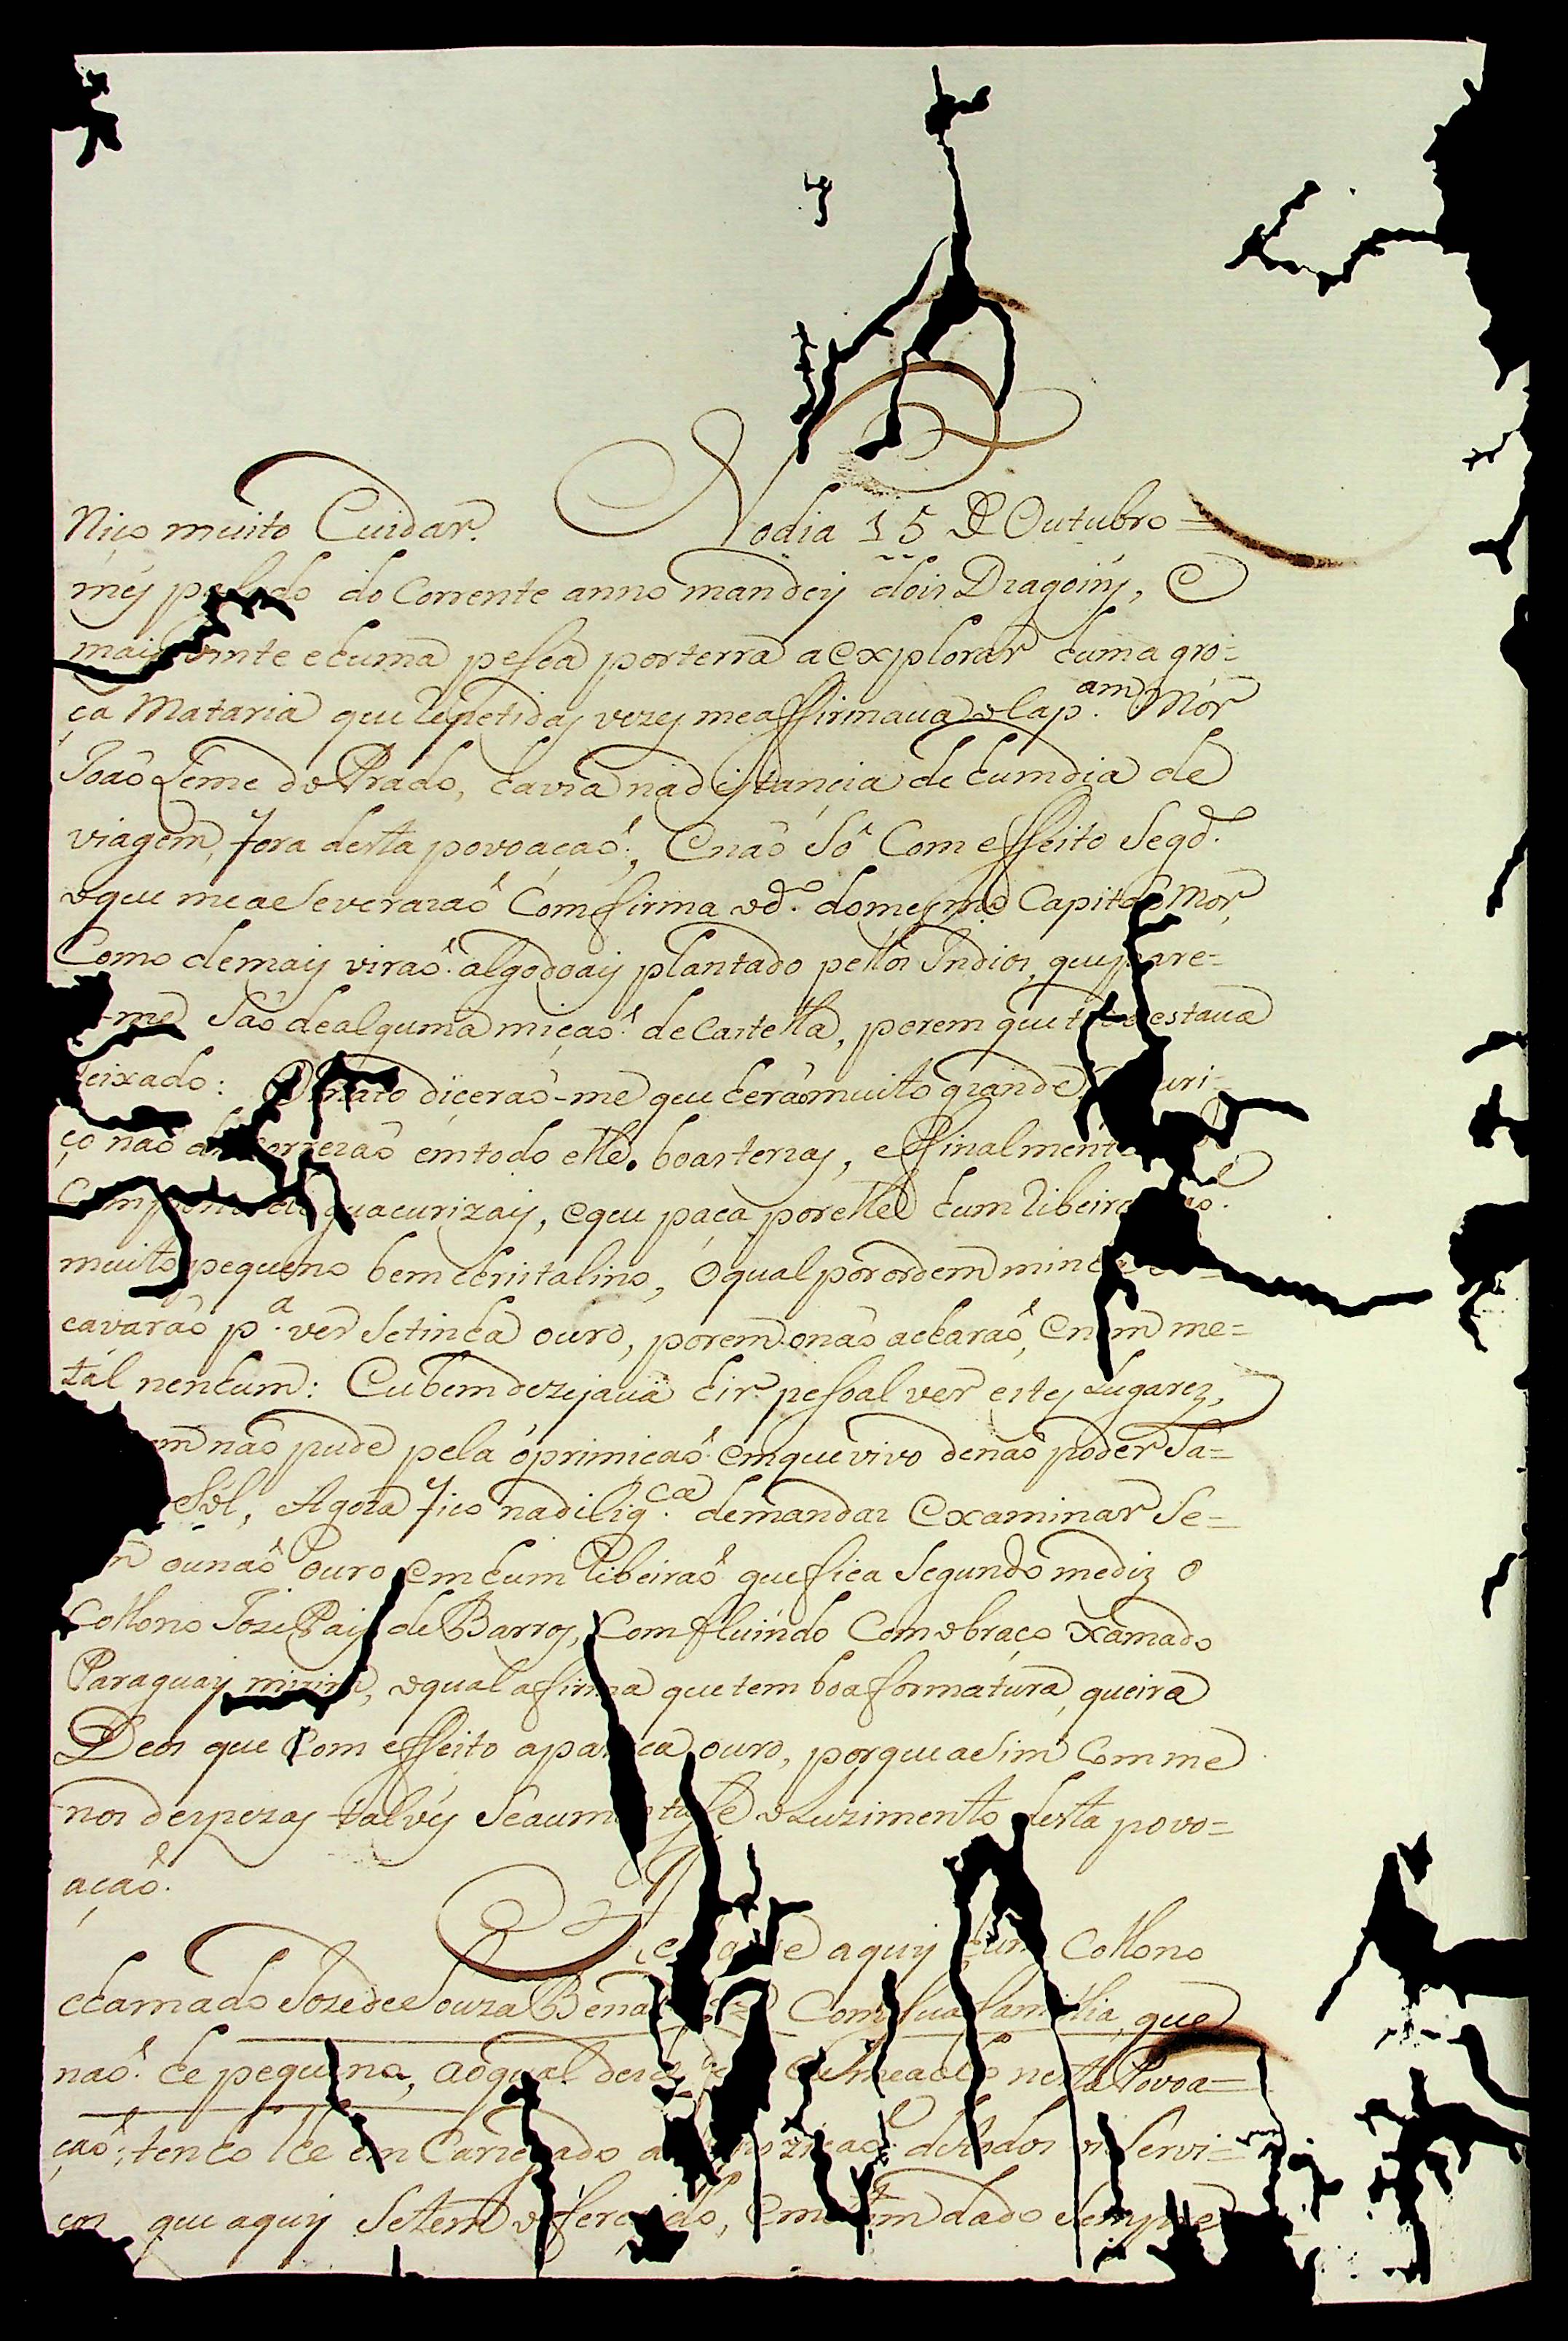 Niço muito Cuidar. Nodia 15 De Outubro =
mes pasado do Corrente anno mandey dois Dragoins, e
mais vinte e huma pesoa por terra a explorar huma gro=
ça Mataria que repetidas vezes meaffirmava o Cap.am Mór
Joaõ Leme do Prado, havia nadistancia de humdia de
viagem, fora desta povoaçaõ; e naõ Só Com effeito Segd.o
oque measeveraraõ Comfirma od.o domesmo Capitaõ Mór,
Como demais viraõ algodoais plantado pellos Indios, que pare=
-me Saõ dealguma miçaõ de Castella, porem que estava
deixado: O mato diçeraõ-me que hera muito grande
ço naõ em todo elle boas terras, efinalmente
guacurizais, eque paça porelle hum ribeiro
muito pequeno bem christalino, O qual por ordem minha
cavaraõ p.a ver Setinha ouro, porem onaõ acharaõ, enem me=
tál nenhum: Eubem dezejava hir pesoal ver estes Lugares,
naõ pude pela óprimicaõ emque vivo denaõ poder Sa=
Sól, Agora fico nadilig.ca demandar examinar Se=
ounaõ ouro em hum Ribeiraõ que fica Segundo mediz o
Collono Jozé Pais de Barros, Comfluindo Com obraço xamado
Paraguay mirim, oqual afirma que tem boa formatura, queira
Deos que Com effeito apareça ouro, porque asim Com me
nos despezas talvés Seaumentase o Luzimento desta povo=
açaõ.
aquy hum Collono
chamado Joze de Souza Bena Com sua familia, que
naõ hé pequena, aoqual nesta Povoa=
çaõ; tenho lhe em Carregado a detodos os Servi=
ços que aquy Setem oferecido, dado Sempre